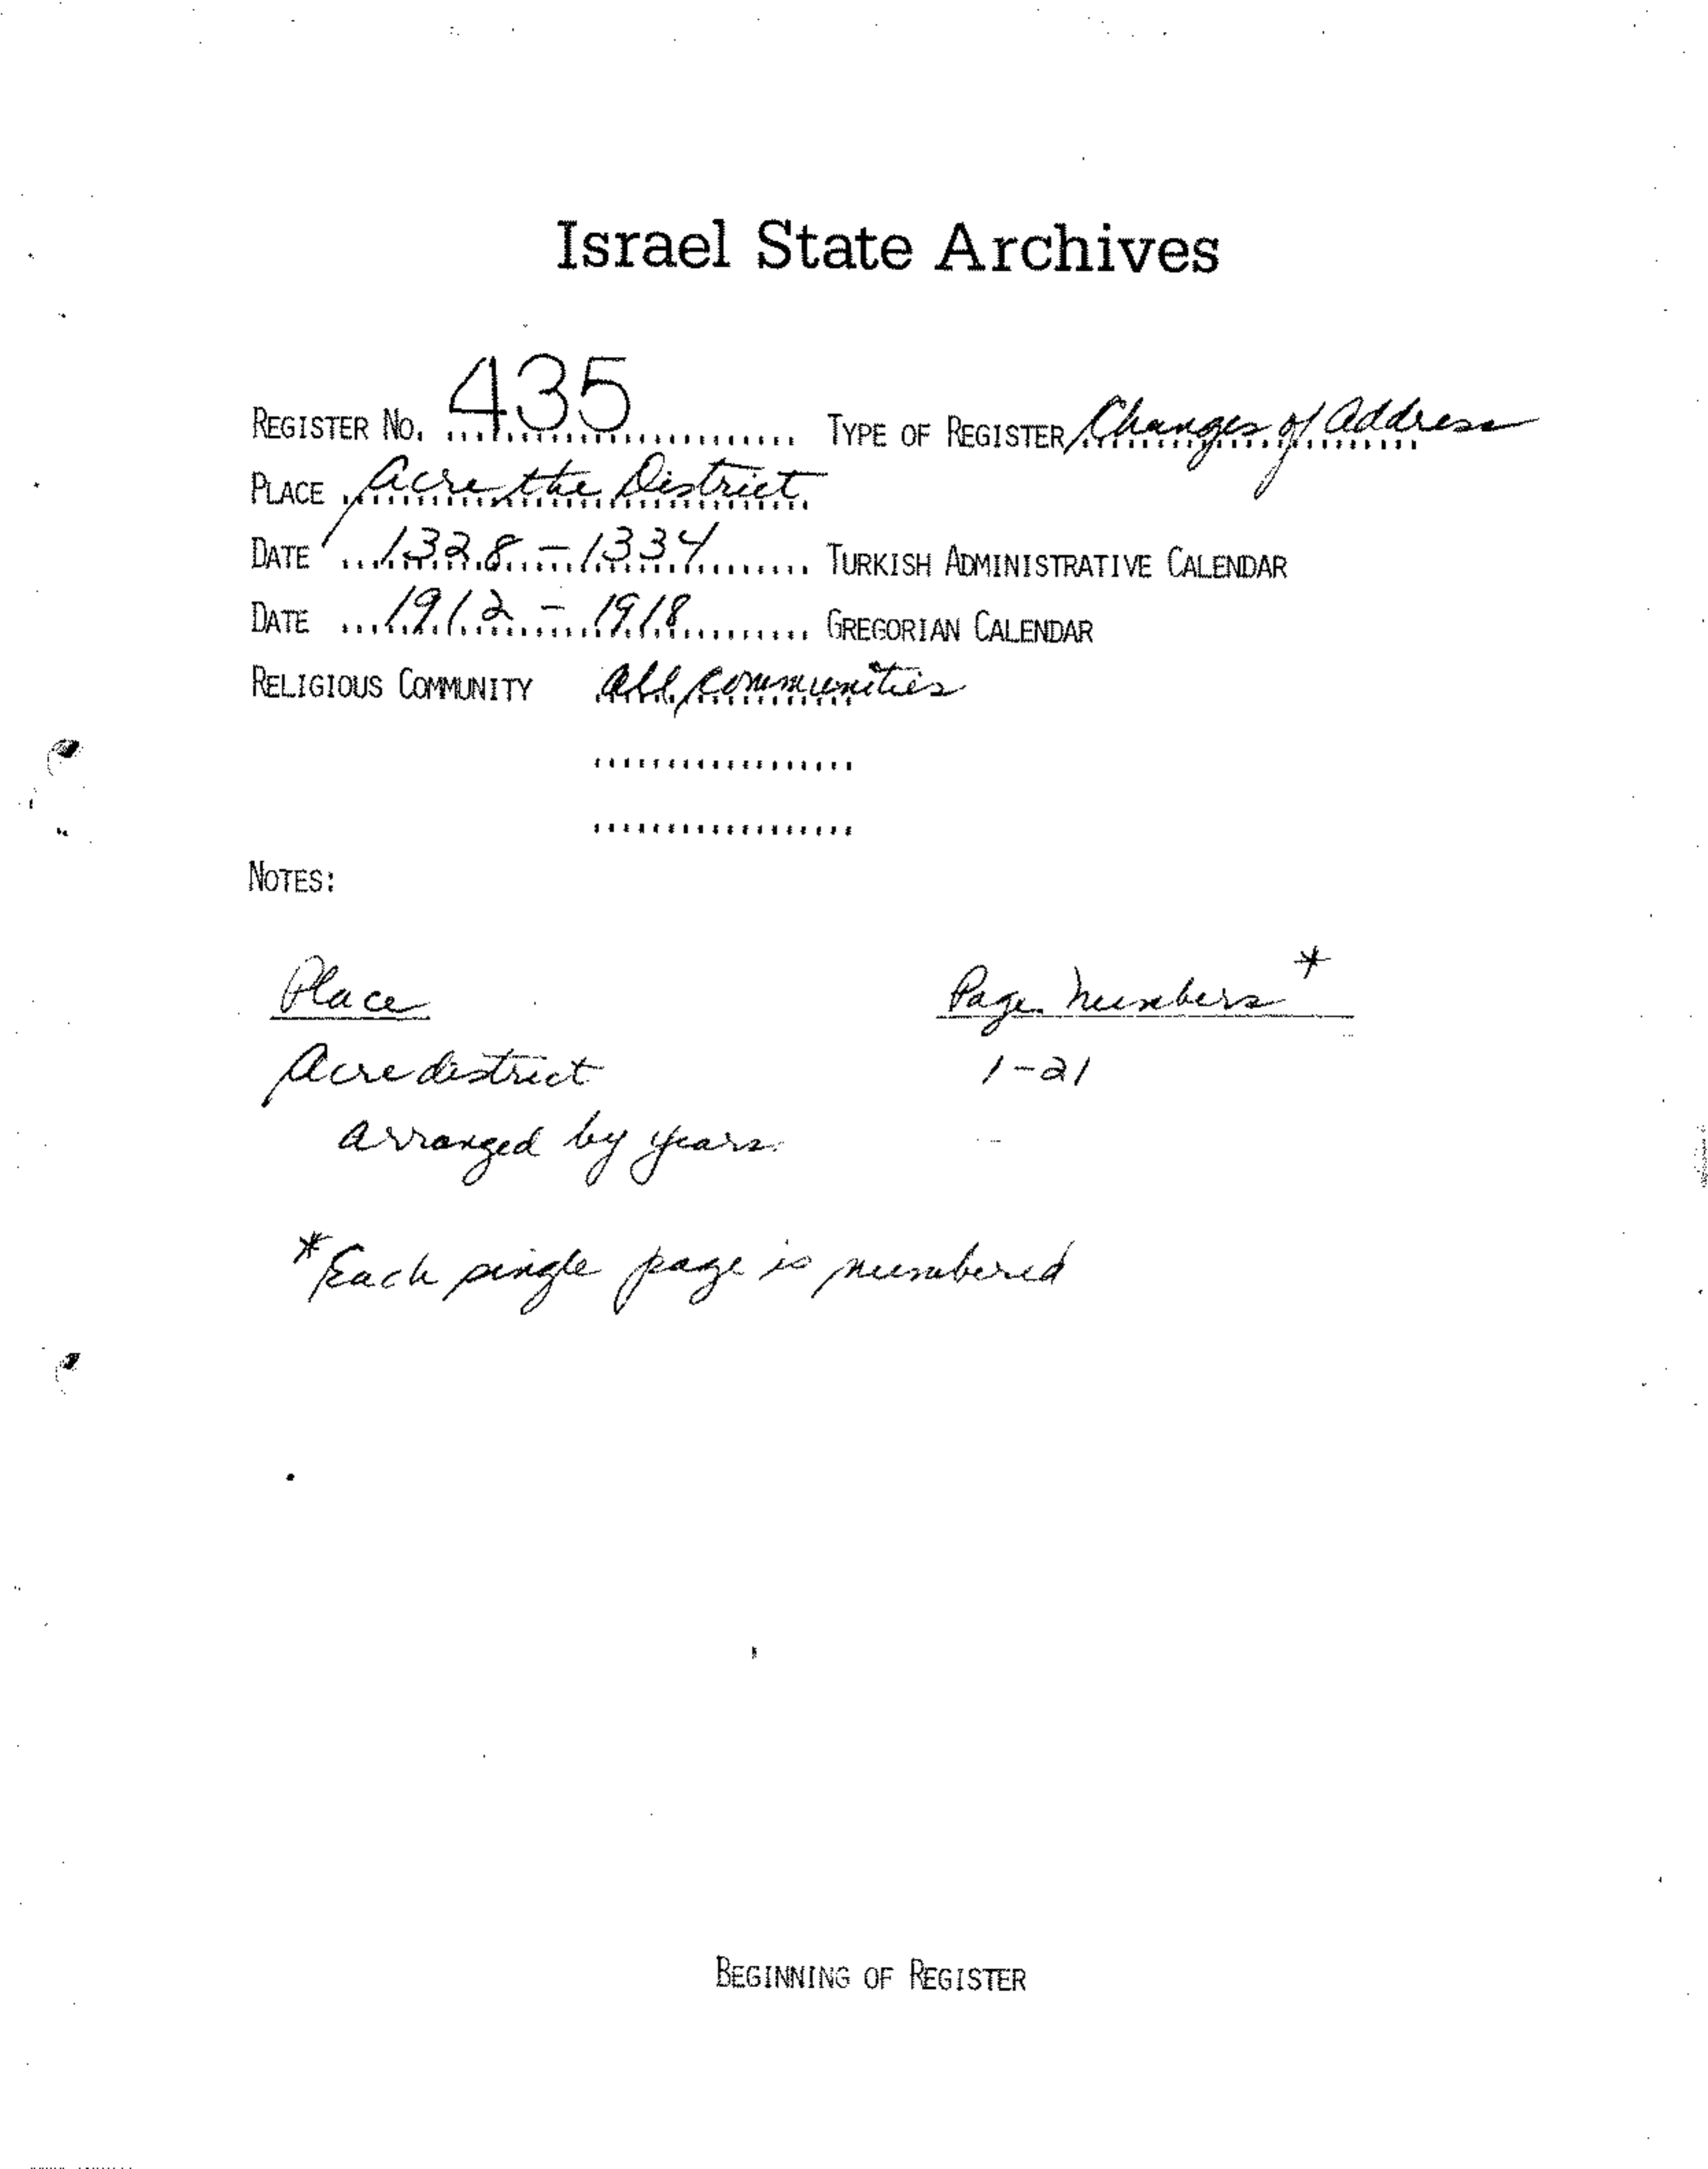 Israel State Archives
REGISTER NO. 435 TYPE OF REGISTER Changes of Address
PLACE Acre the District
DATE 1328-1334 TURKISH ADMINISTRATIVE CALENDAR
DATE 1912 - 1918 GREGORIAN CALENDAR
RELIGIOUS COMMUNITY all communities
NOTES:
Place Page Numbers *
Acre district 1-21
arranged by years.
* Each single page is numbered
BEGINNING OF REGISTER